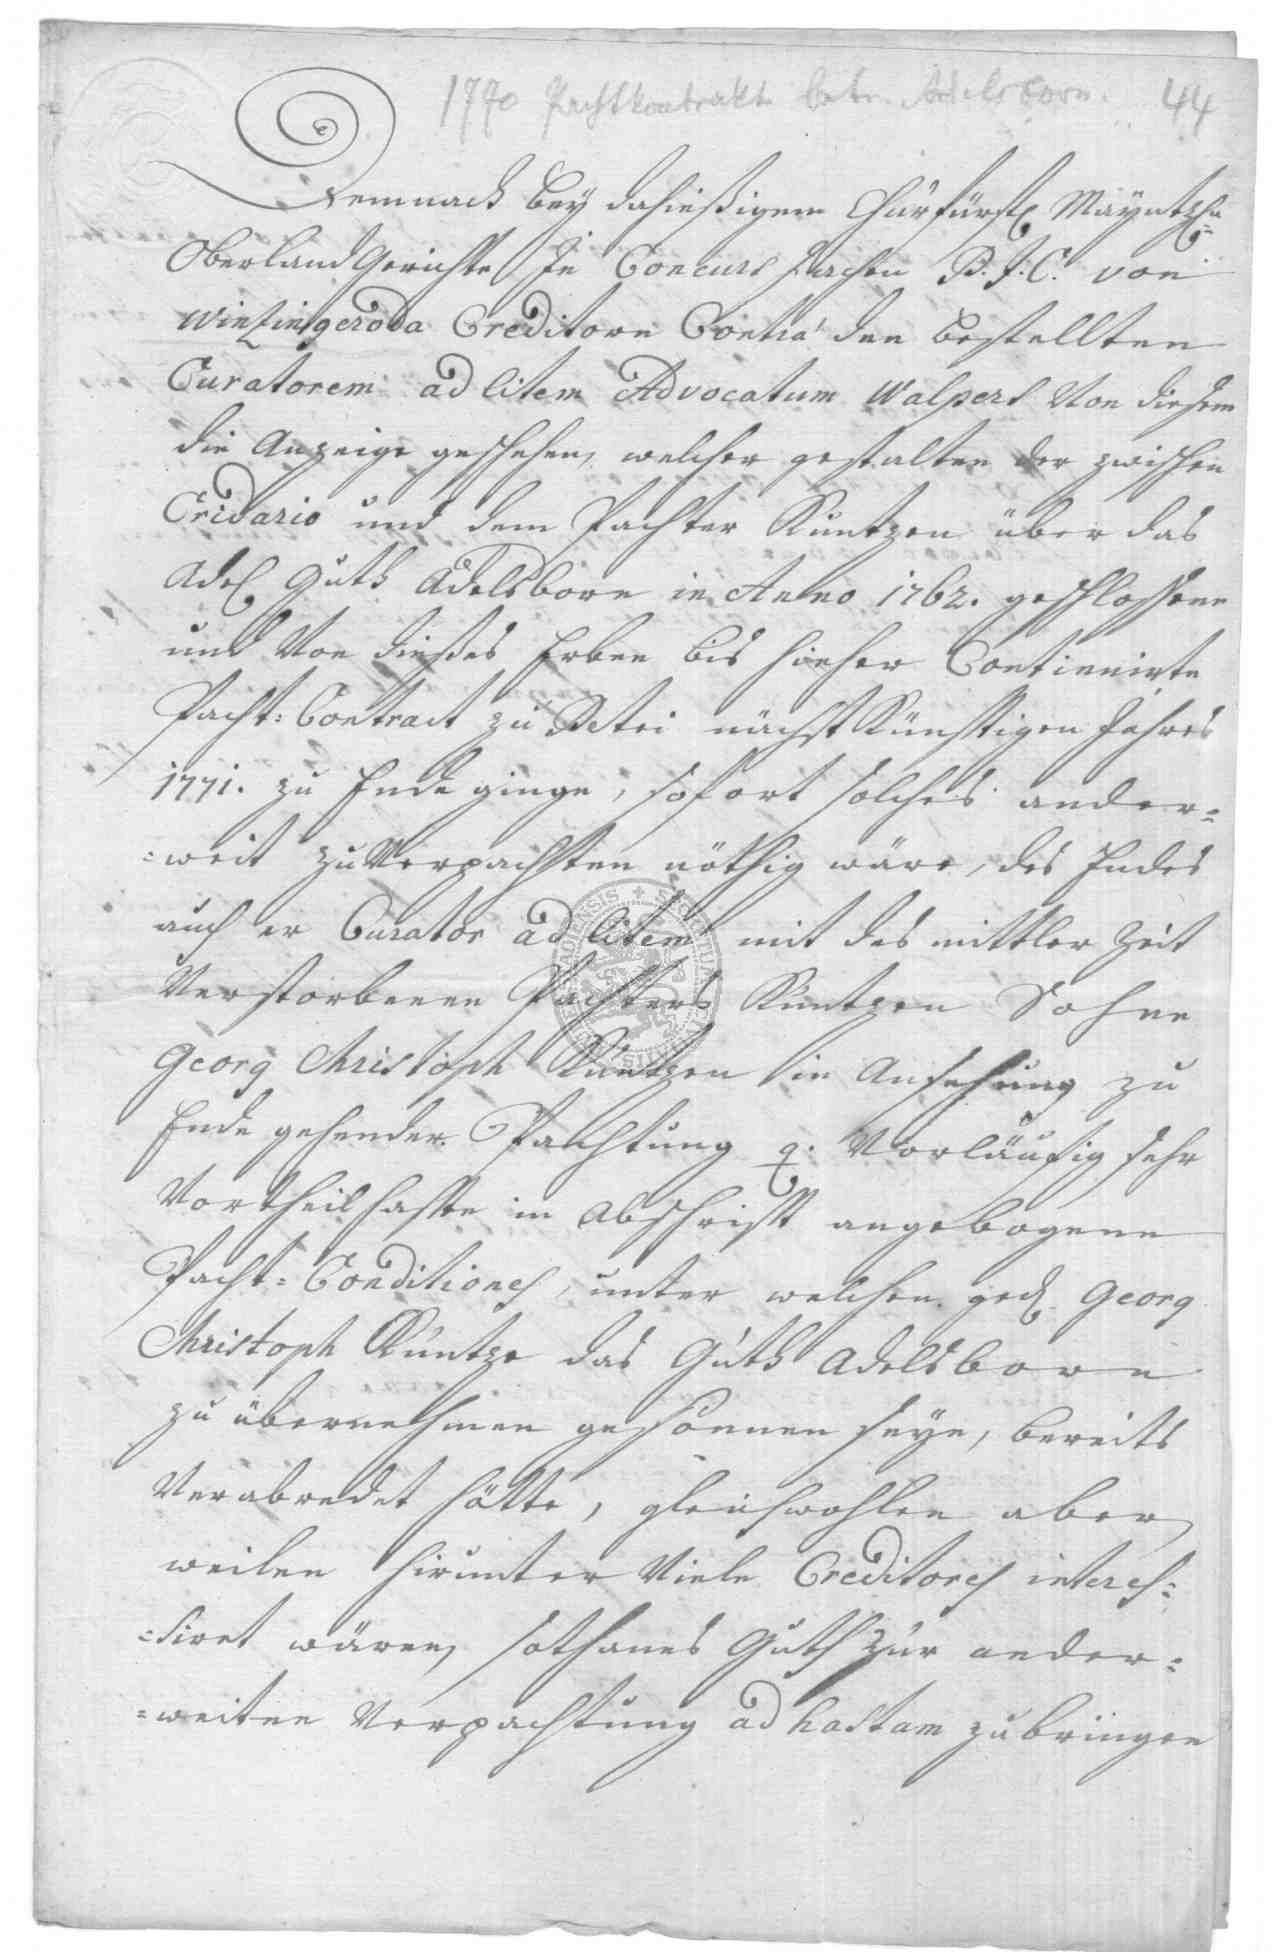 1770 Pachtkontrakt betr. Adelsborn. 44
Demnach bey dahießigem Churfürstl. Mayntzschn
Oberland Gerichte In Concurs sachen B. J. C. von
Wintzingeroda Creditorn Contra den bestellten
Curatorem ad litem Advocatum Walpert Von diesem
die Anzeige geschehen, welcher gestalten der zwischen
Cridario und dem Pachter Kuntzen über das
Adel. Guth Adelsborn in Anno 1762. geschlossene
und Von dießes Erben bis hieher Continuirte
Pacht-Contract zu Petri nächst Künftigen Jahres
1771. zu Ende ginge, sofort solches ander=
=weit zu Verpachten nöthig wäre, des Endes
auch er Curator ad litem mit des mittler Zeit
Verstorbenen Pachters Kuntzen Sohne
Georg Christoph Kuntzen in Ansehung zu
Ende gehender Pachtung q. Vorläufig sehr
Vortheilhaffte in Abschrifft angebogene
Pacht=Conditiones, unter welchen ged. Georg
Christoph Kuntze das Guth Adelsborn
zu übernehmen gesonnen seye, bereits
Verabredet hätte, gleichwohlen aber
weilen hirunter Viele Creditores interes=
=siret wären, sothanes Guth zur ander=
=weiten Verpachtung ad hastam zu bringen